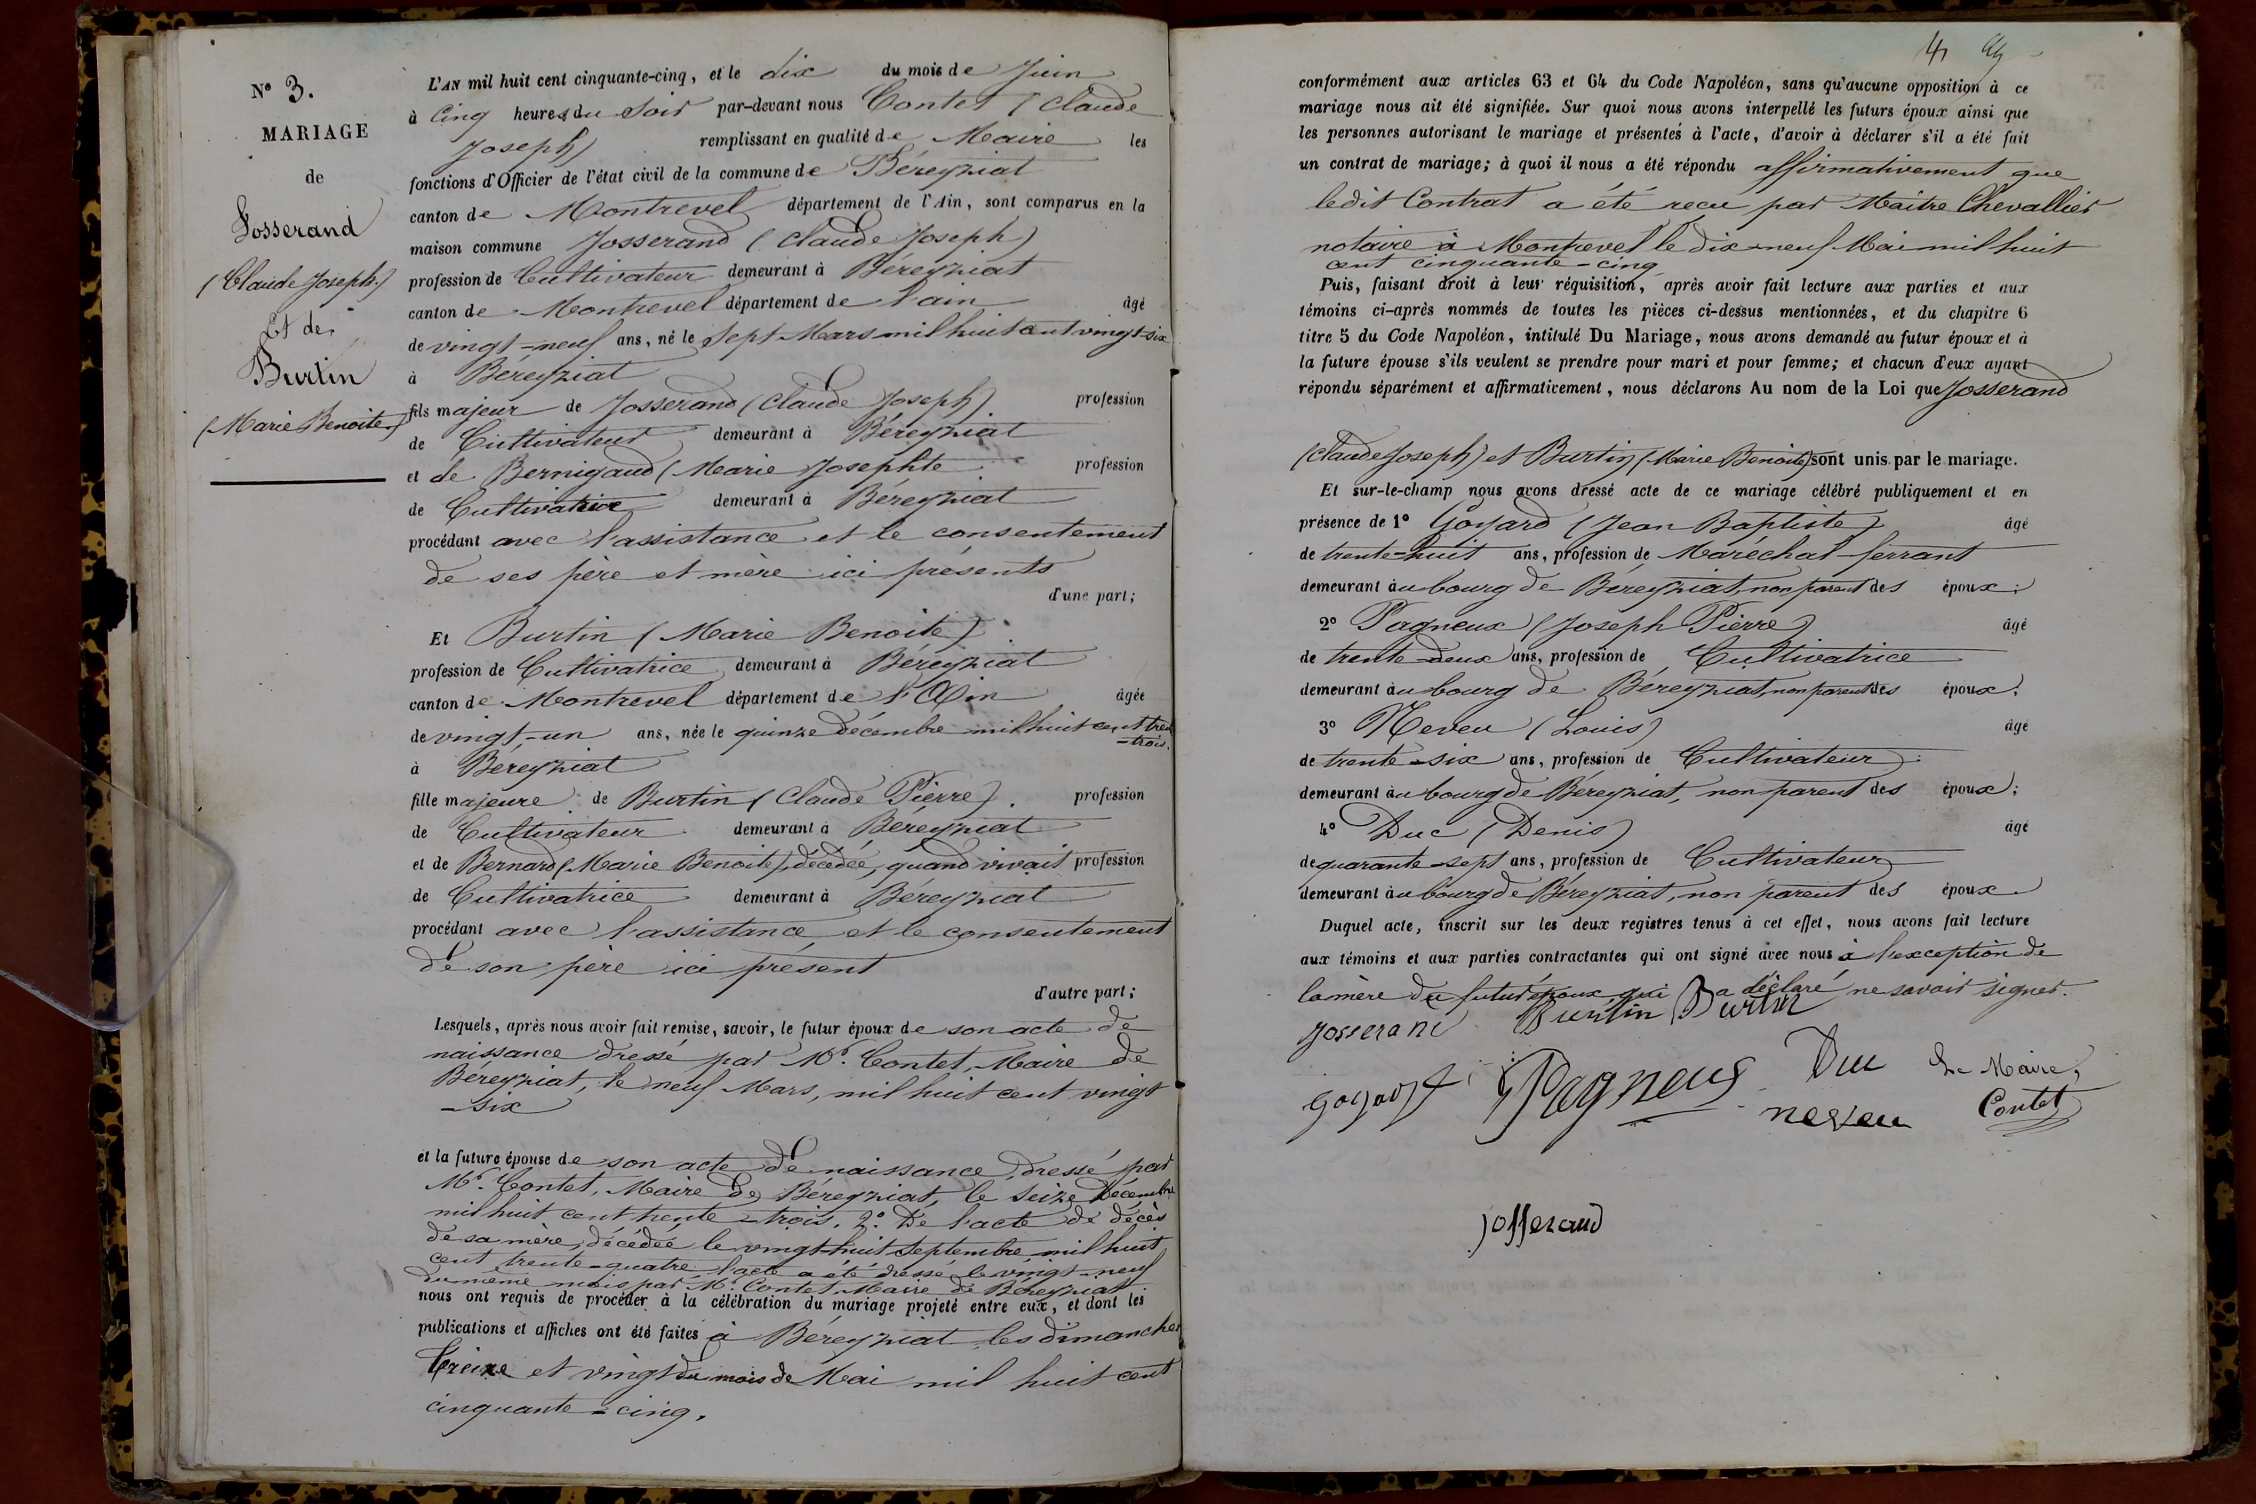 N° 3.
MARIAGE
de
Josserand
(Claude Joseph)
Et de
Burtin
(Marie Benoite)
L'AN mil huit cent cinquante-cinq, et le dix du mois de Juin
à Cinq heures du Soir par-devant nous Contet (Claude
Joseph) remplissant en qualité de Maire les
fonctions d'Officier de l'état civil de la commune de Béreyziat
canton de Montrevel département de l'Ain, sont comparus en la
maison commune Josserand (Claude Joseph)
profession de Cultivateur demeurant à Béreyziat
canton de Montrevel département de l'ain âgé
de vingt-neuf ans, né le Sept Mars mil huit cent vingt-six
à Béreyziat
fils majeur de Josserand (Claude Joseph) profession
de Cultivateur demeurant à Béreyziat
et de Bernigaud (Marie Josephte profession
de Cultivatrice demeurant à Béreyziat
procédant avec l'assistance et le consentement
de ses père et mère ici présents
d'une part;
Et Burtin (Marie Benoite)
profession de Cultivatrice demeurant à Béreyziat
canton de Montrevel département de l'Ain âgée
de vingt-un ans, née le quinze décembre mil huit cent trente
-trois.
à Béreyziat
fille majeure de Burtin (Claude Pierre). profession
de Cultivateur demeurant à Béreyziat
et de Bernard (Marie Benoite) décédée, quand vivait profession
de Cultivatrice demeurant à Béreyziat
procédant avec l'assistance et le consentement
de son père ici présent
d'autre part;
Lesquels, après nous avoir fait remise, savoir, le futur époux de son acte de
naissance dressé par Mr. Contet, Maire de
Béreyziat, le neuf Mars, mil huit cent vingt
-six
et la future épouse de son acte de naissance, dressé par
Mr. Contet, Maire de Béreyziat, le Seize Décembre
mil huit cent trente-trois. 2° De l'acte de décès
de sa mère, décédée le vingt-huit Septembre mil huit
cent trente-quatre l'acte a été dressé le vingt-neuf
du même mois par Mr. Contet Maire de Béreyziat
nous ont requis de procéder à la célébration du mariage projeté entre eux, et dont les
publications et affiches ont été faites à Béreyziat les dimanches
treize et vingt du mois de Mai mil huit cent
cinquante-cinq.
4
conformément aux articles 63 et 64 du Code Napoléon, sans qu'aucune opposition à ce
mariage nous ait été signifiée. Sur quoi nous avons interpellé les futurs époux ainsi que
les personnes autorisant le mariage et présentes à l'acte, d'avoir à déclarer s'il a été fait
un contrat de mariage; à quoi il nous a été répondu affirmativement que
ledit Contrat a été reçu par Maître Chevallier
notaire à Montrevel le dix-neuf Mai mil huit
cent cinquante-cinq
Puis, faisant droit à leur réquisition, après avoir fait lecture aux parties et aux
témoins ci-après nommés de toutes les pièces ci-dessus mentionnées, et du chapitre 6
titre 5 du Code Napoléon, intitulé Du Mariage, nous avons demandé au futur époux et à
la future épouse s'ils veulent se prendre pour mari et pour femme; et chacun d'eux ayant
répondu séparément et affirmativement, nous déclarons Au nom de la Loi que Josserand
(Claude Joseph) et Burtin (Marie Benoite) sont unis par le mariage.
Et sur-le-champ nous avons dressé acte de ce mariage célébré publiquement et en
présence de 1° Goyard (Jean Baptiste) âgé
de trente-huit ans, profession de Maréchal ferrant
demeurant au bourg de Béreyziat, non parent des époux;
2° Pagneux (Joseph Pierre) âgé
de trente-deux ans, profession de Cultivatrice
demeurant au bourg de Béreyziat, non parent des époux;
3° Neveu (Louis) âgé
de trente-six ans, profession de Cultivateur
demeurant au bourg de Béreyziat, non parent des époux;
4° Duc (Denis) âgé
de quarante-sept ans, profession de Cultivateur
demeurant au bourg de Béreyziat, non parent des époux
Duquel acte, inscrit sur les deux registres tenus à cet effet, nous avons fait lecture
aux témoins et aux parties contractantes qui ont signé avec nous à l'exception de
la mère du futur époux qui a déclaré ne savoir signer.
Josserand Burtin Burtin
goyard Pagneux Duc Le Maire,
neveu Contet
Josserand